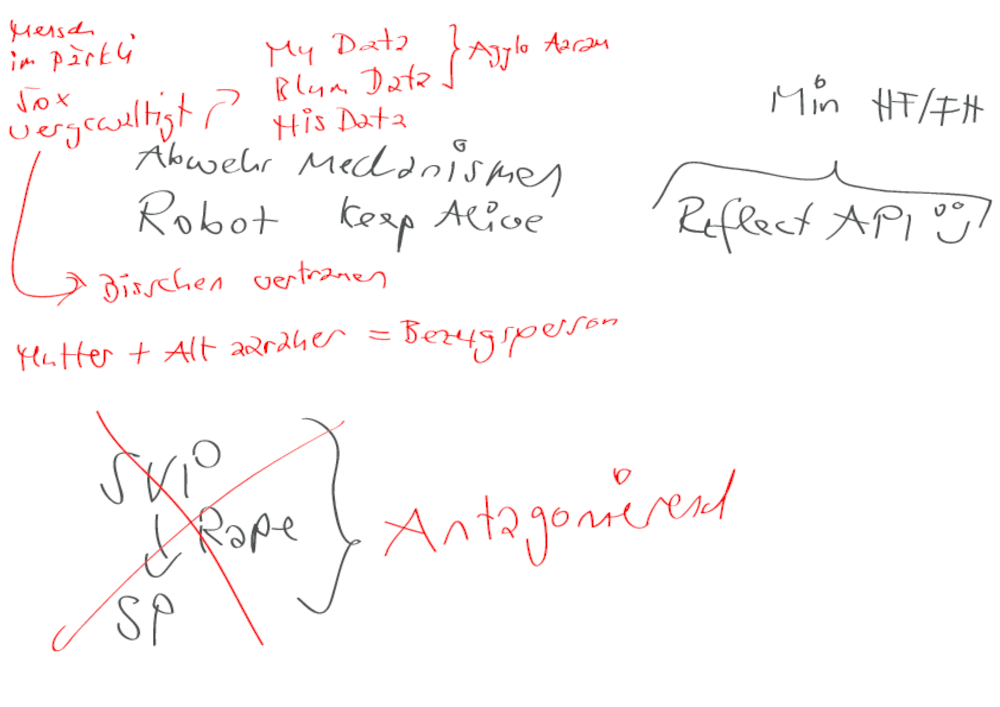 Mensch
im Pärkli
5ox
vergewaltigt
My Data
Blum Data
His Data
Agglo Aarau
Min HF/FH
Abwehr Mechanismen
Robot Keep Alive
Reflect API
Bisschen vertrauen
Mutter + Alt aarauer = Bezugsperson
SVP
Rape
SP
Antagonierend